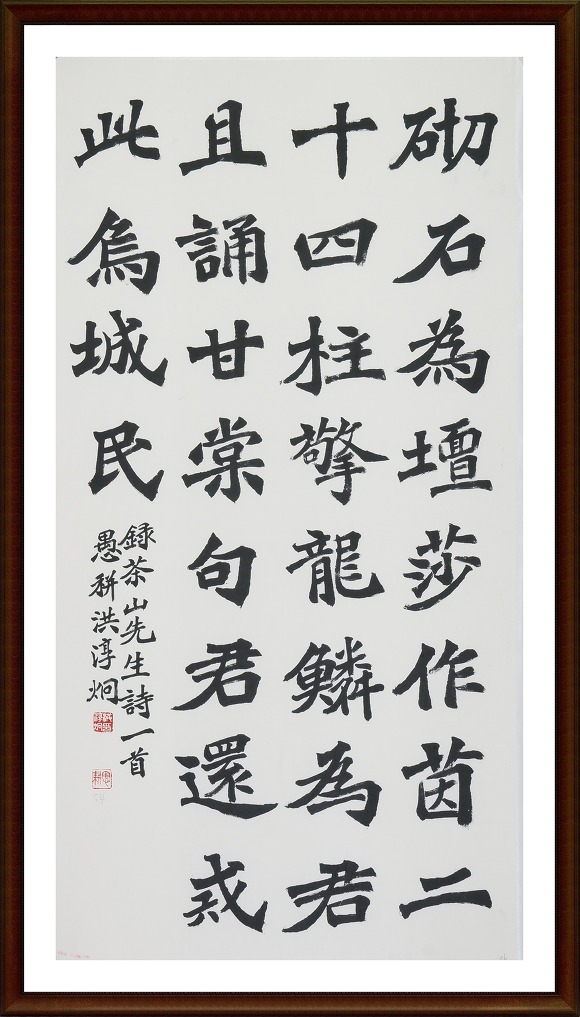 砌石為壇莎作茵二
十四柱擎龍鱗為君
且誦甘棠句君還戒
此烏城民
録茶山先生詩一首
愚耕洪淳炯